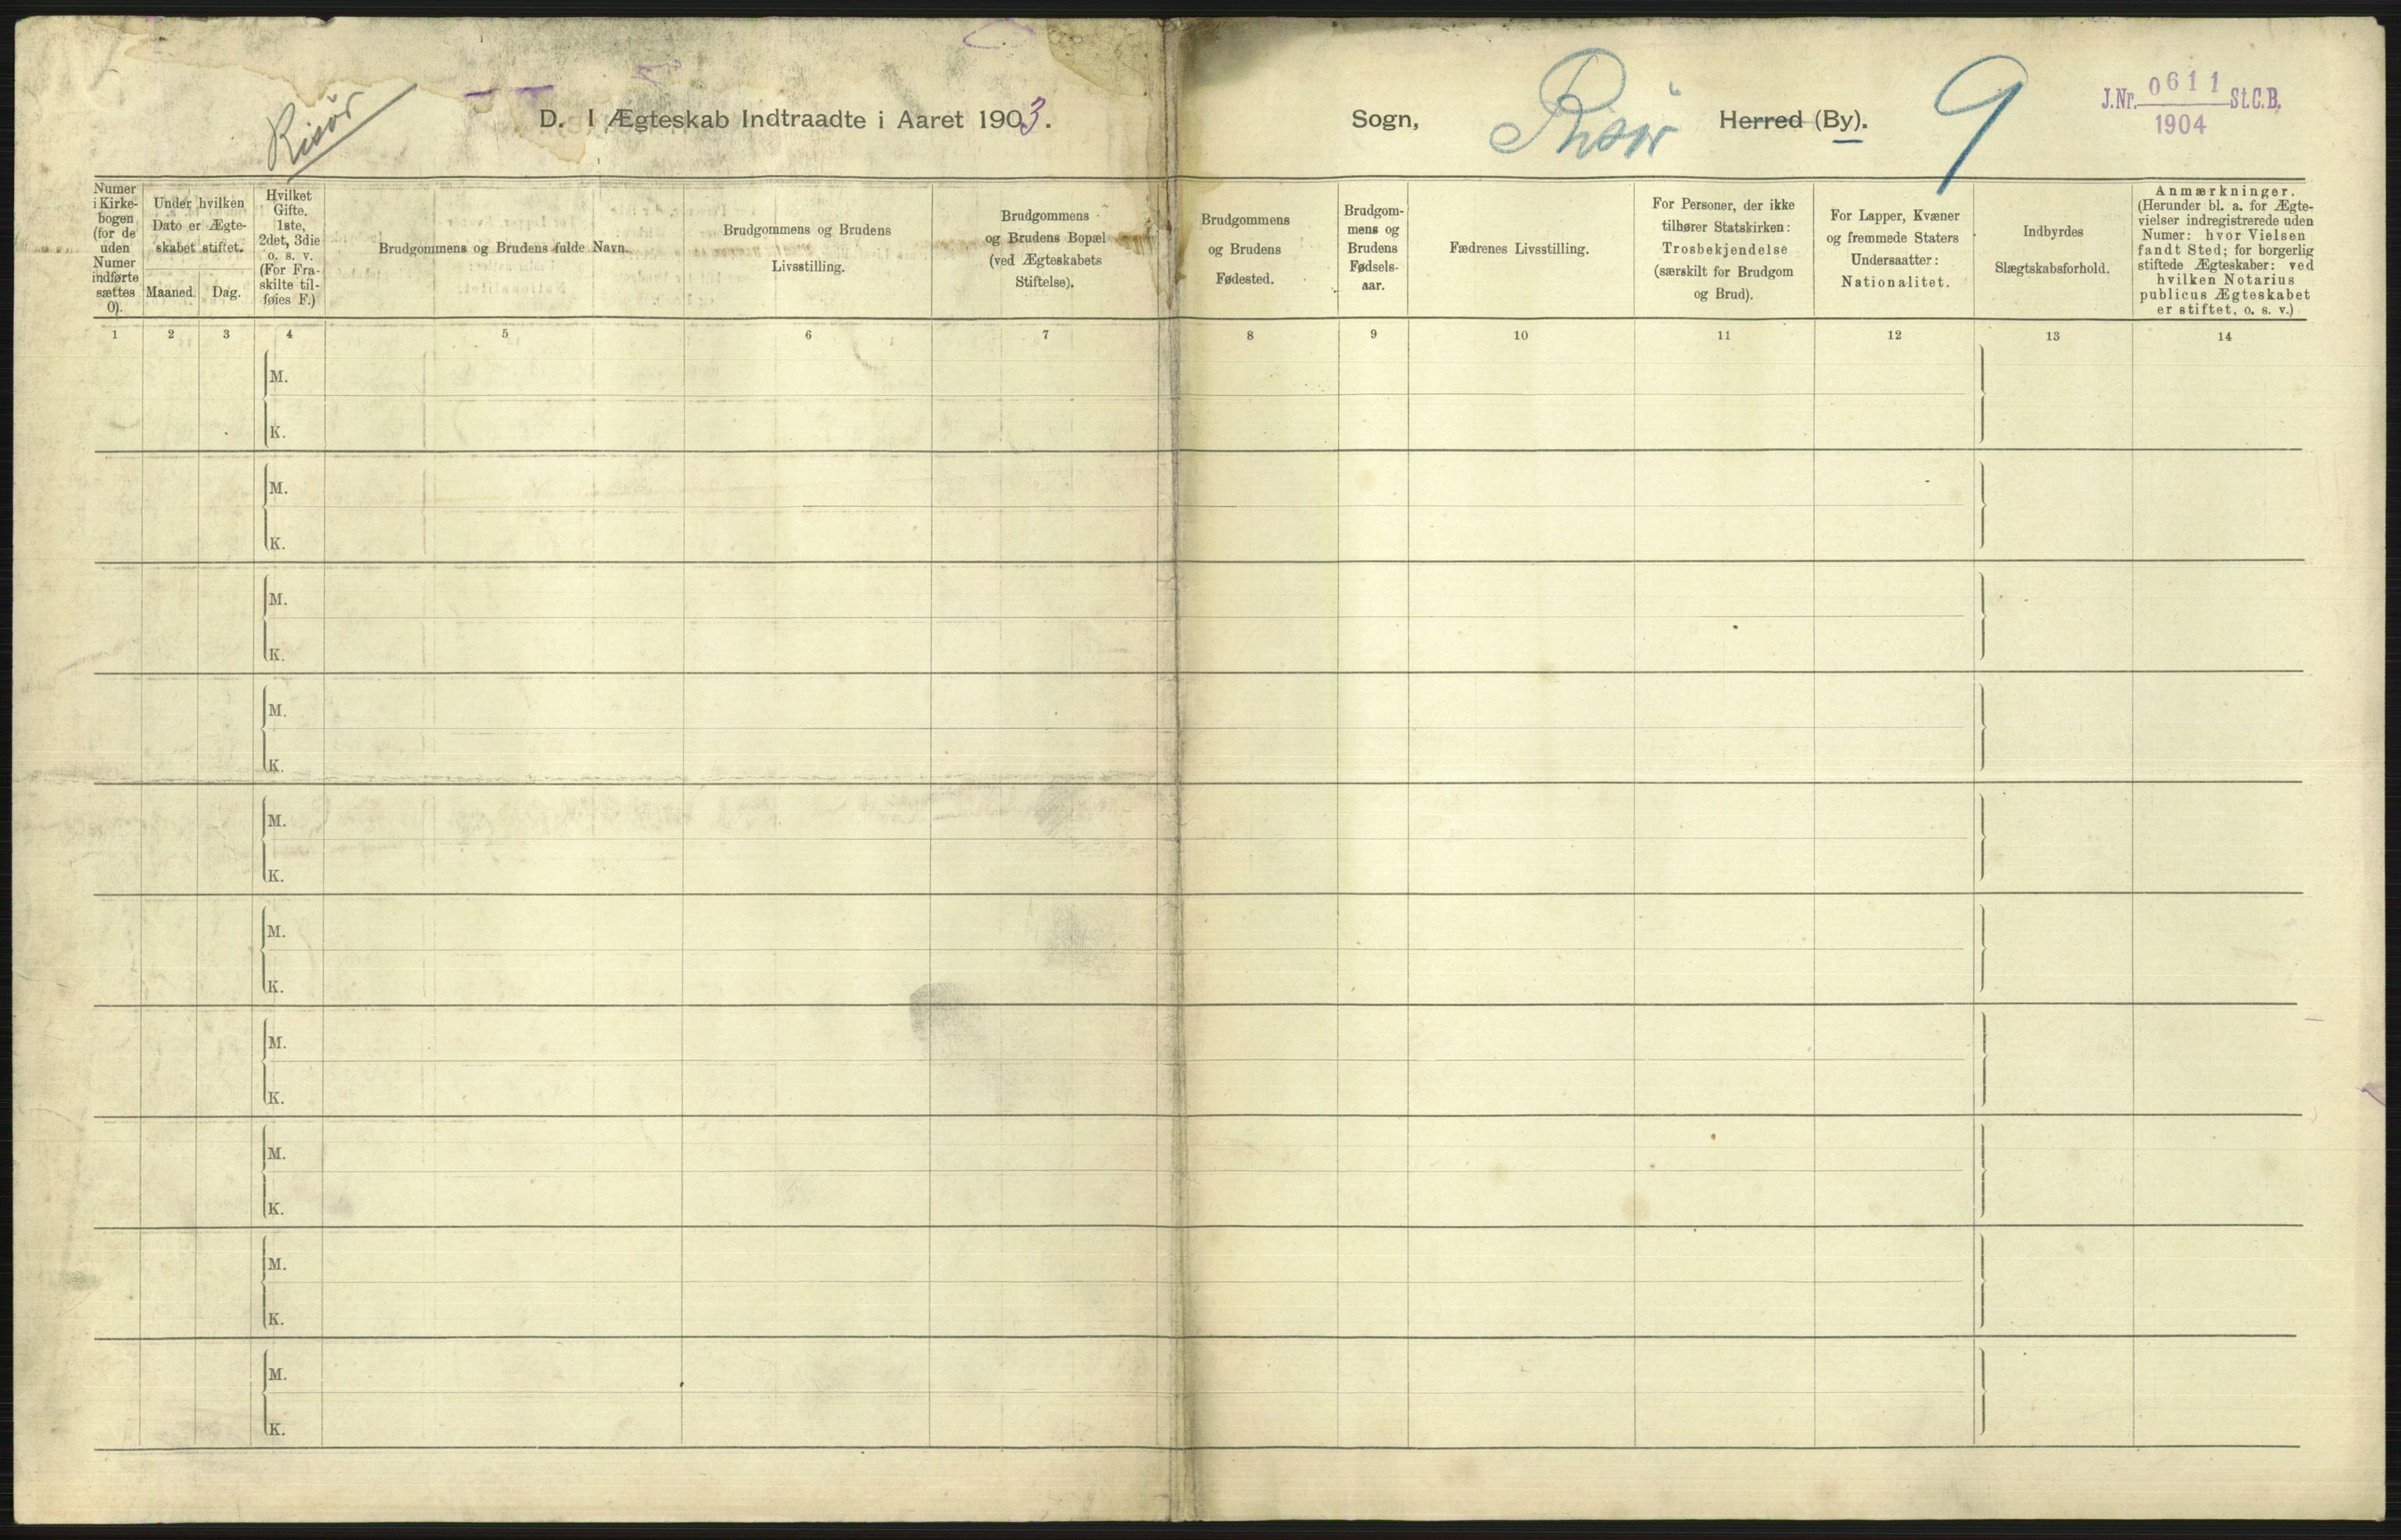 Risör
D. I Ægteskab Indtraadte i Aaret 1903.
Sogn, Risör Herred (By).
9
J.Nr. 0611 St.C.B.
1904
Numer
i Kirke-
bogen
(for de
uden
Numer
indførte
sættes
0).
Under hvilken
Dato er Ægte-
skabet stiftet.
Maaned.
Dag.
Hvilket
Gifte.
1ste,
2det, 3die
o. s. v.
(For Fra-
skilte til-
føies F.)
Brudgommens og Brudens fulde Navn.
Brudgommens og Brudens
Livsstilling.
Brudgommens
og Brudens Bopæl
(ved Ægteskabets
Stiftelse).
Brudgommens
og Brudens
Fødested.
Brudgom-
mens og
Brudens
Fødsels-
aar.
Fædrenes Livsstilling.
For Personer, der ikke
tilhører Statskirken:
Trosbekjendelse
(særskilt for Brudgom
og Brud).
For Lapper, Kvæner
og fremmede Staters
Undersaatter:
Nationalitet.
Indbyrdes
Slægtskabsforhold.
Anmærkninger.
(Herunder bl. a. for Ægte-
vielser indregistrerede uden
Numer: hvor Vielsen
fandt Sted; for borgerlig
stiftede Ægteskaber: ved
hvilken Notarius
publicus Ægteskabet
er stiftet, o. s. v.)
1 2 3 4 5 6 7 8 9 10 11 12 13 14
M.
K.
M.
K.
M.
K.
M.
K.
M.
K.
M.
K.
M.
K.
M.
K.
M.
K.
M.
K.